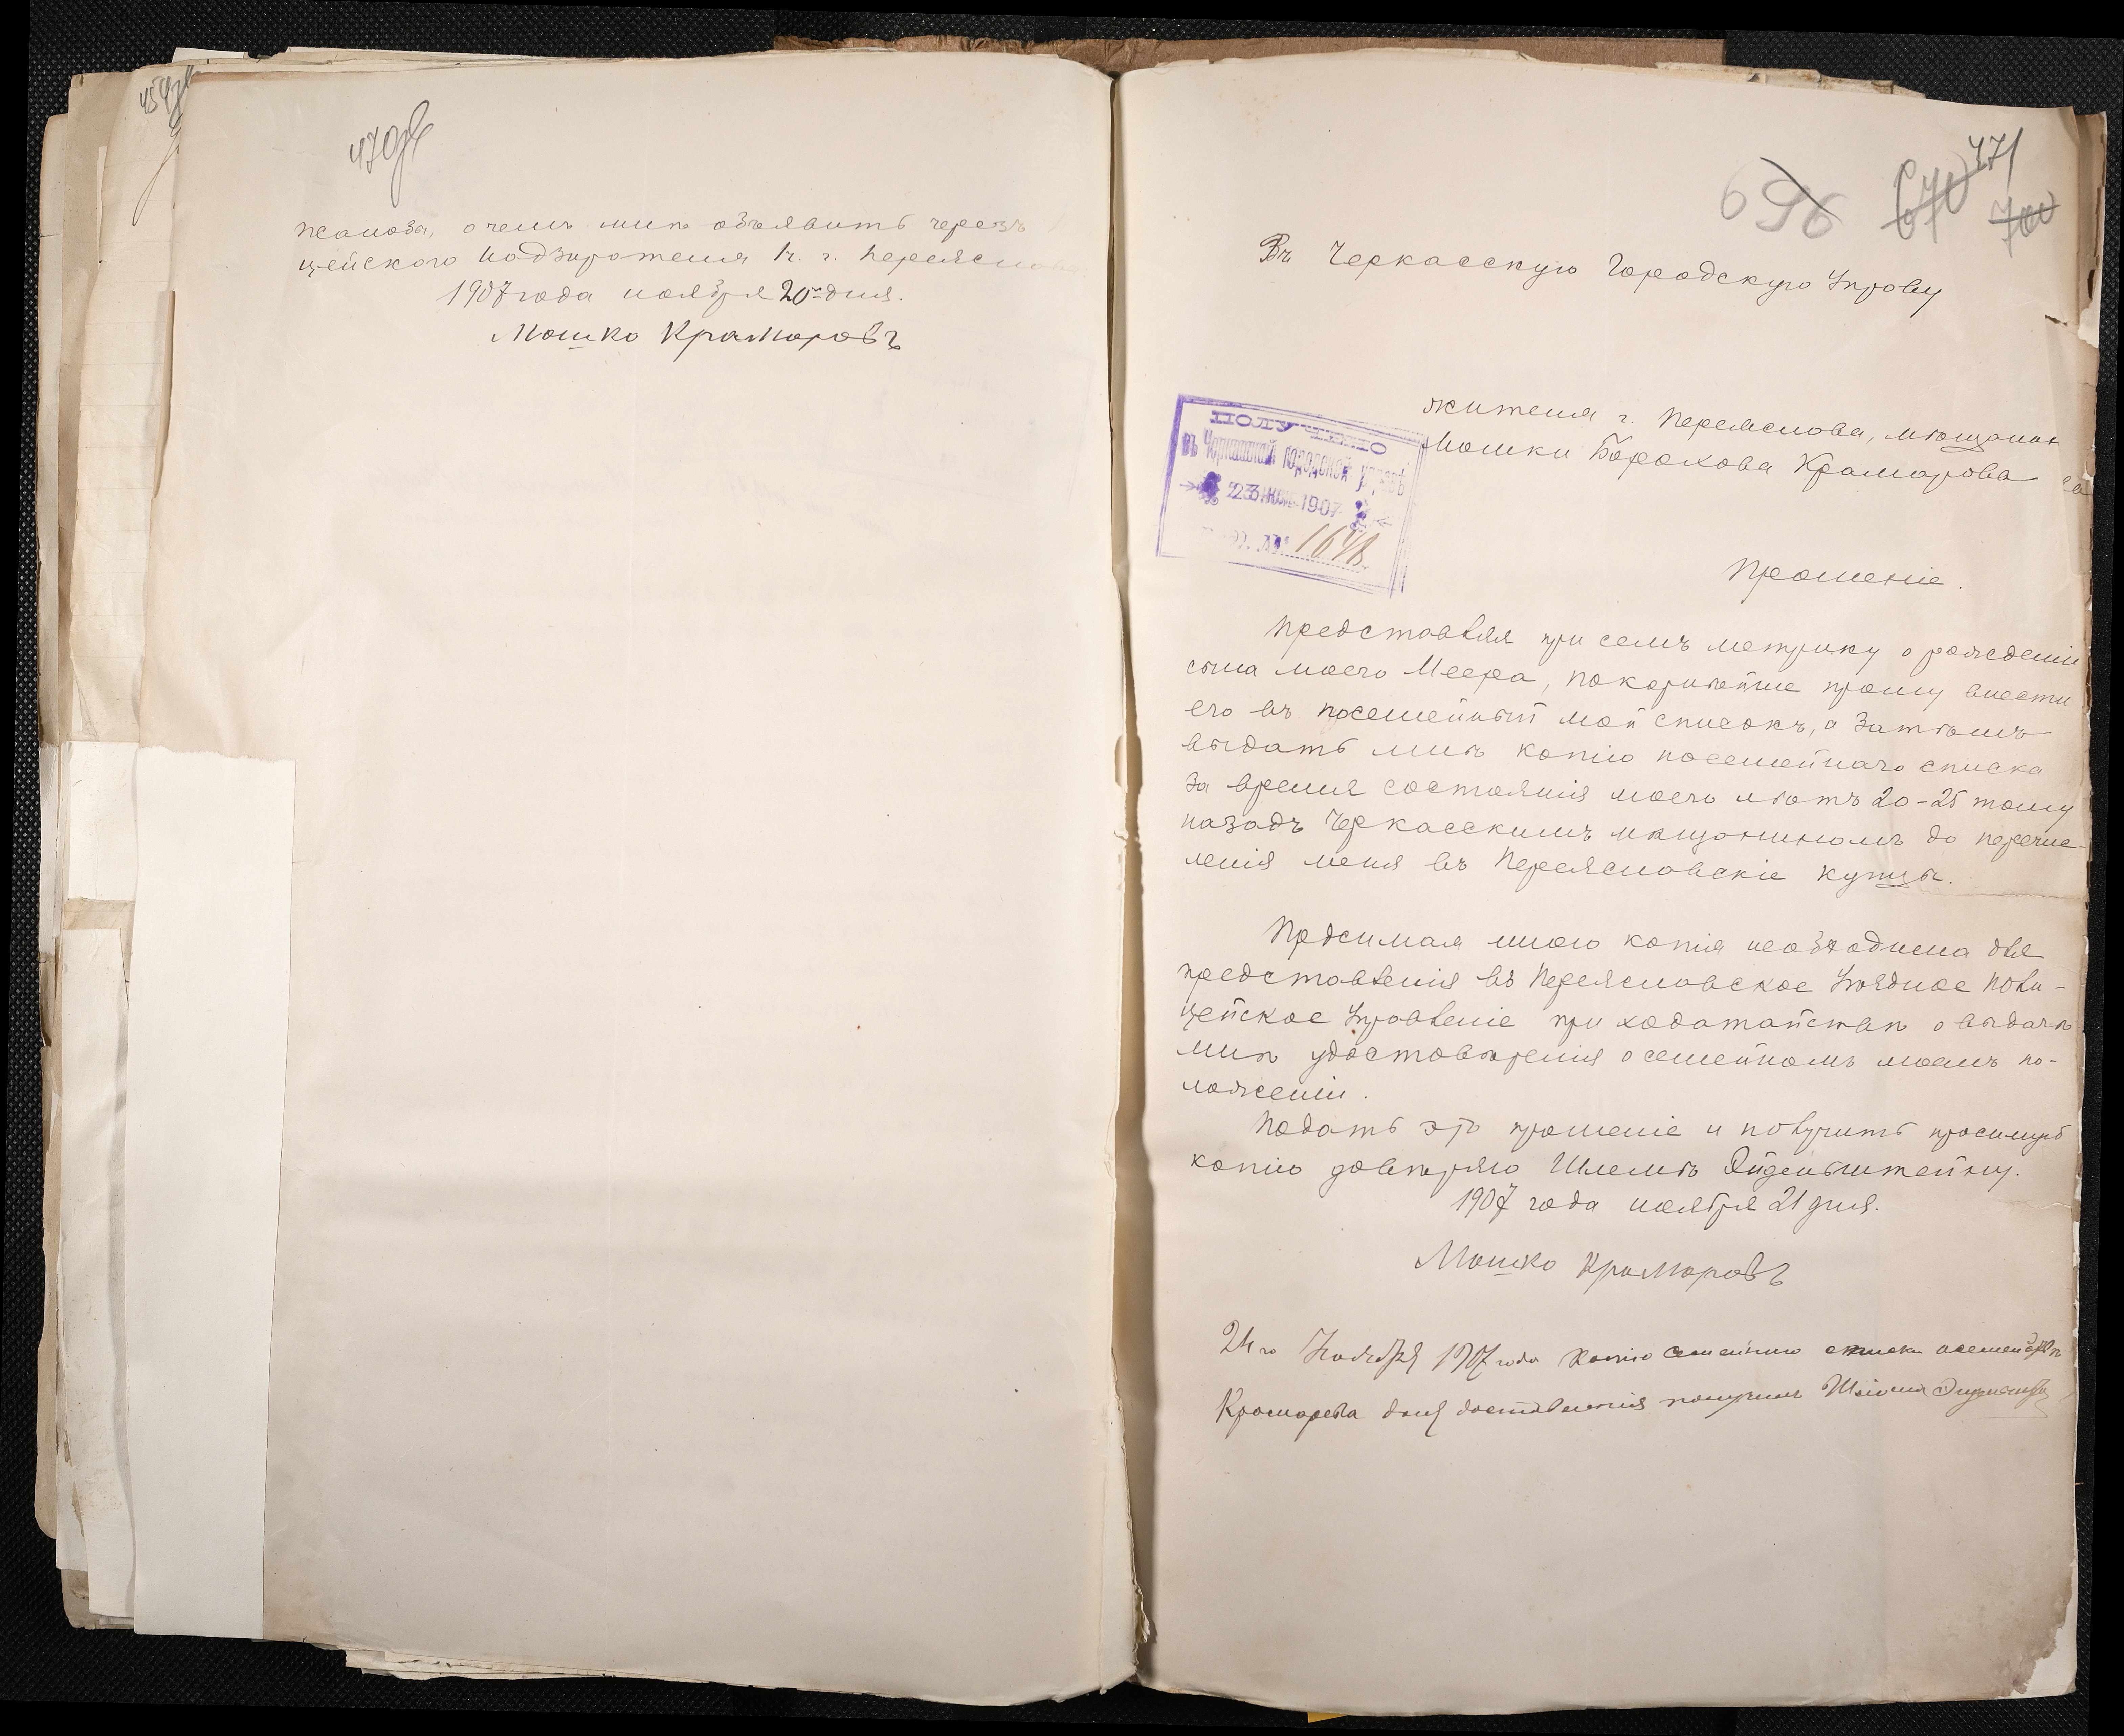 454об
470об
жанова, о чемъ мнѣ объявить черезъ
цейского Надзирателя 1 ч. г. Переяслова
1907 года ноября 20го дня.
Мошко Крамаровъ
696 670 471
700
Въ Черкасскую Городскую Управу
жителя г. Переяслова, мѣщанин
Мошки Борохова Крамарова
ПОЛУЧЕНО
въ Черкасской городской управѣ
23 НОЯ 1907
№ 1648
Прошеніе.
Представляя при семъ метрику о рожденіи
сына моего Меера, покорнѣйше прошу внести
его въ посемейный мой списокъ, а затѣмъ
выдать мнѣ копію посемейнаго списка
за время состоянія моего лѣтъ 20-25 тому
назадъ Черкасскимъ мѣщаниномъ до перечис-
ленія меня въ Переясловскіе купцы.
Просимая мною копія необходима для
представленія въ Переясловское Уѣздное Поли-
цейское Управленіе при ходатайствѣ о выдачѣ
мнѣ удостовѣренія о семейномъ моемъ по-
ложеніи.
Подать это прошеніе и получить просимую
копію довѣряю Шлемѣ Эйдельштейну.
1907 года ноября 21 дня.
Мошко Крамаровъ
24го Ноября 1907 года Копію семейнаго списка о семействѣ
Крамарова для доставленія получилъ Шлема